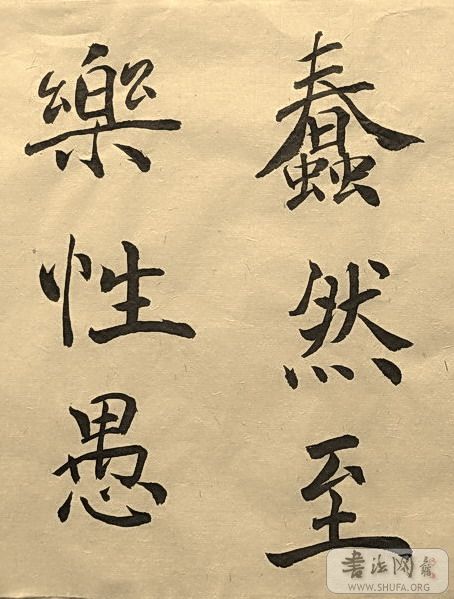 蠢然至
樂性愚
書法网
WWW.SHUFA.ORG